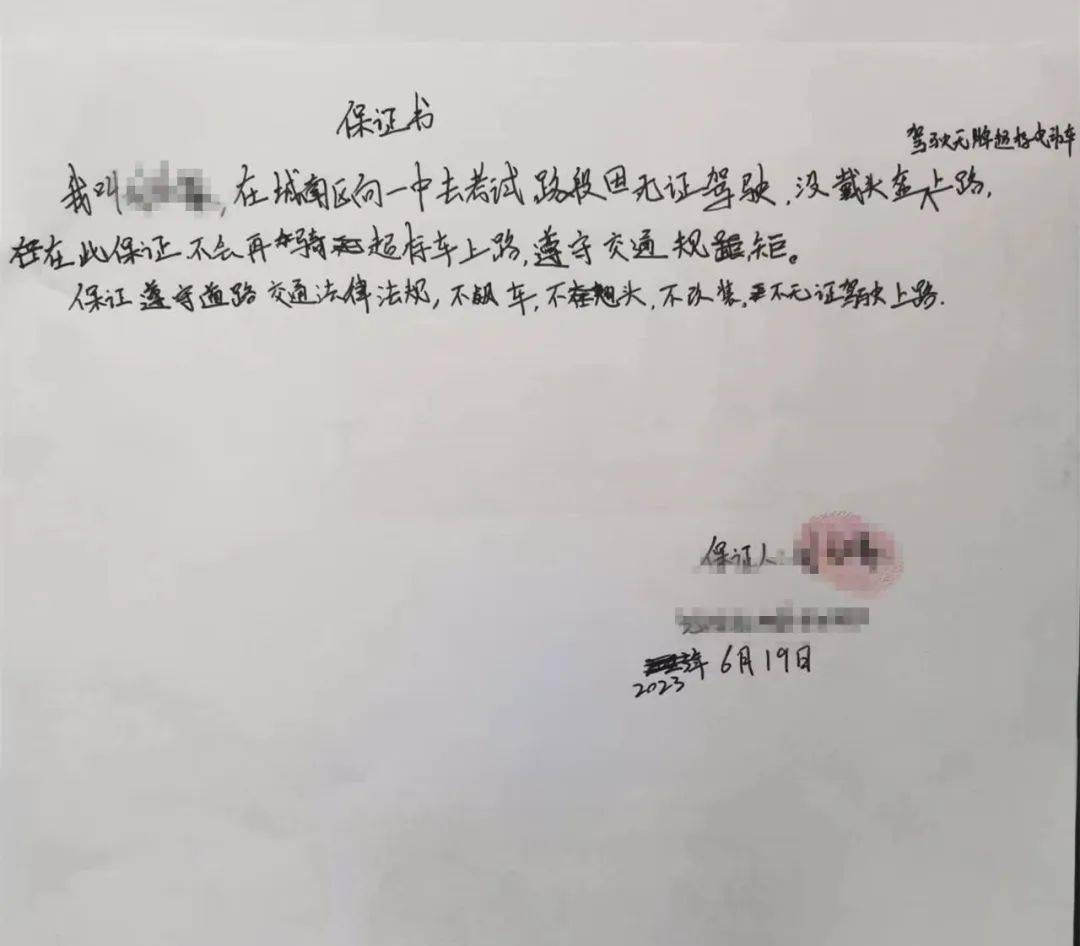 保证书
驾驶无牌超标电动车
我叫 ,在城南区向一中去考试路段因无证驾驶,没戴头盔上路,
在此保证不会再骑超标车上路,遵守交通规矩。
保证遵守道路交通法律法规,不飙车,不翘头,不改装,不无证驾驶上路.
保证人:
年6月19日
2023